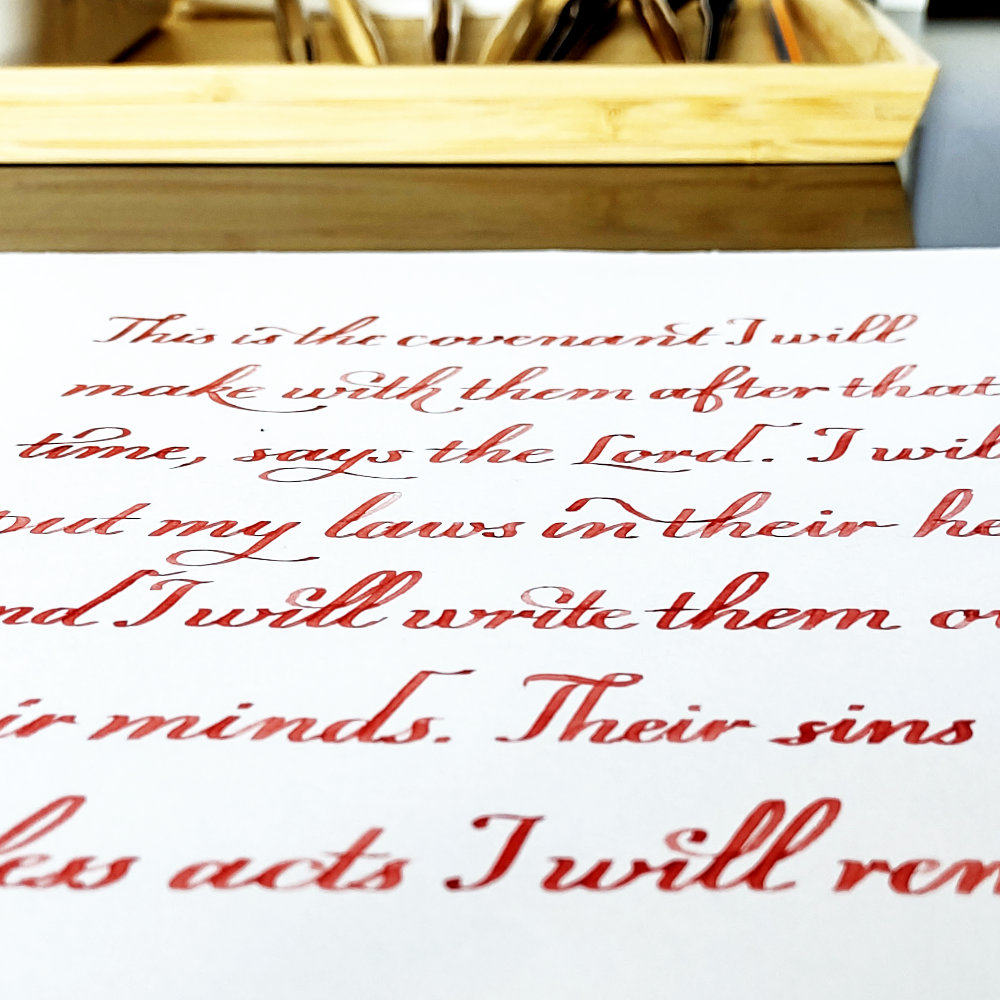 This is the covenant I will
make with them after that
time, says the Lord. I will
put my laws in their he
nd I will write them o
ir minds. Their sins
less acts I will rem